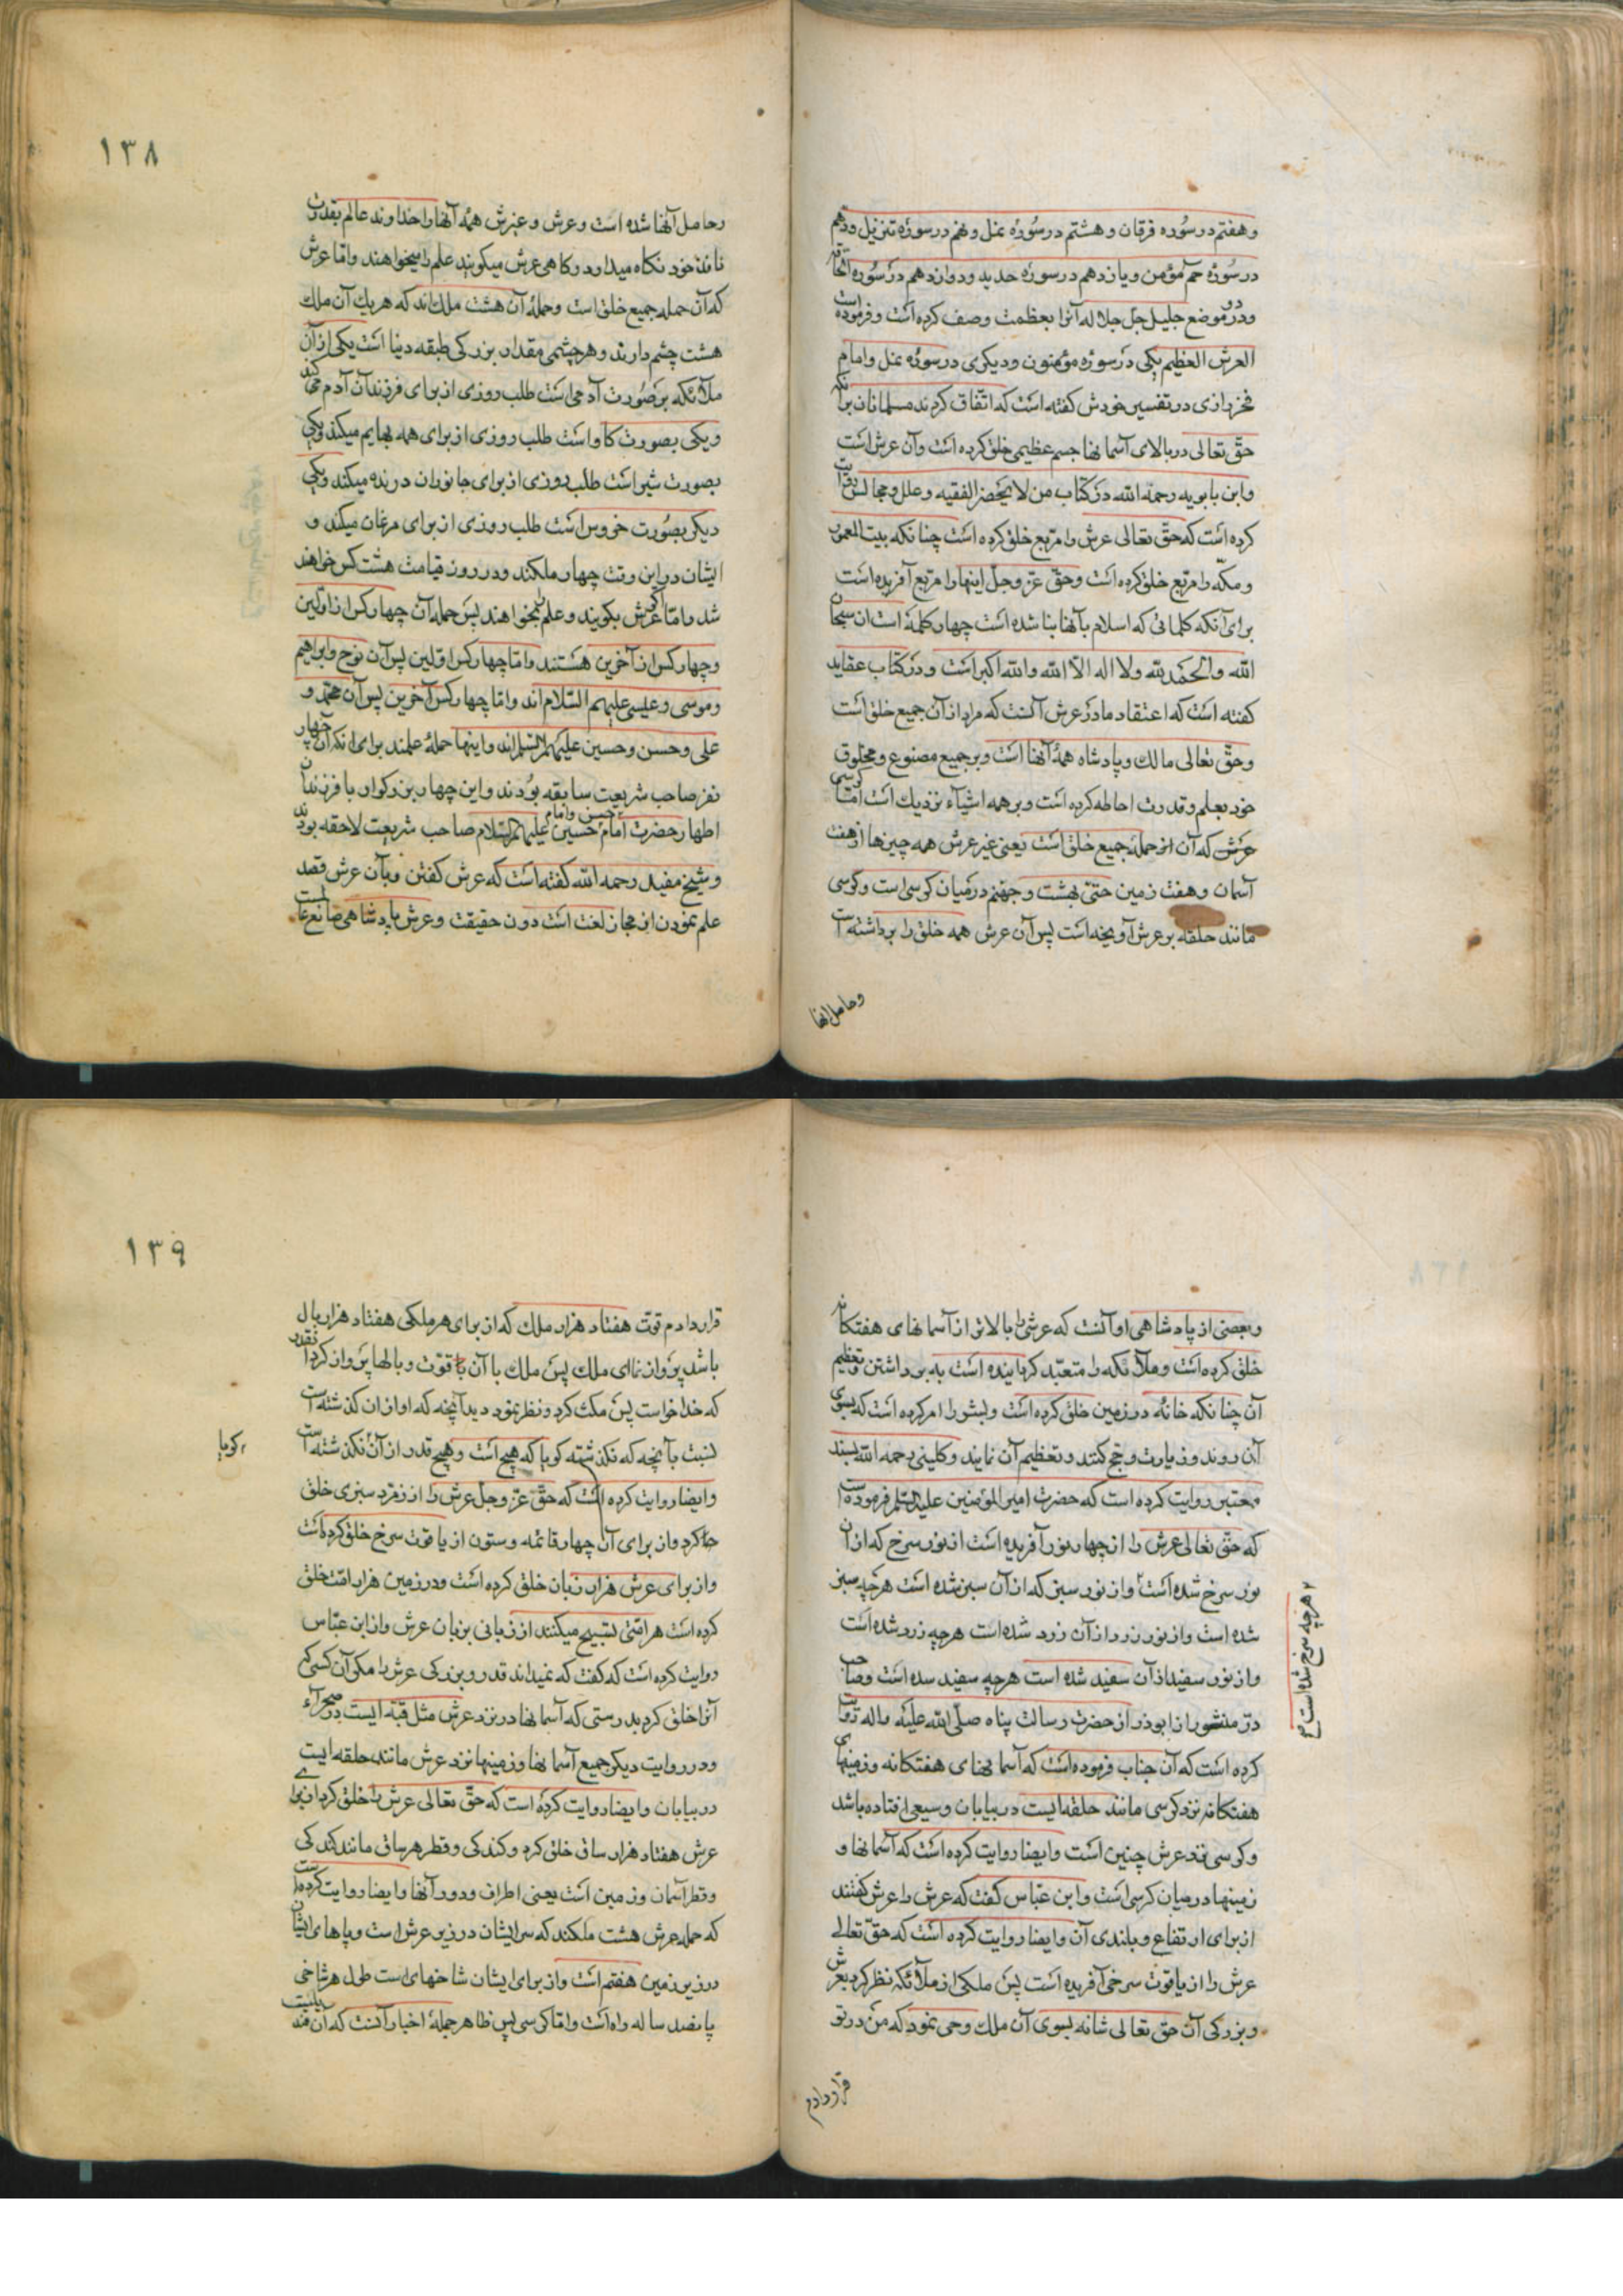 وهفتم در سوره فرقان وهشتم در سوره نمل ونهم در سوره تنزیل ودهم
در سوره حم مؤمن ویازدهم در سوره حدید ودوازدهم در سوره الحاقه
ودر دو موضع جلیل جل جلاله آنرا بعظمت وصف کرده است وفرموده است
العرش العظیم یکی در سوره مؤمنون ودیکری در سوره نمل وامام
فخر رازی در تفسیر خودش کفته است که اتفاق کردند مسلمانان برآنکه
حق تعالی در بالای آسمانها جسم عظیمی خلق کرده است وآن عرش است
وابن بابویه رحمه الله در کتاب من لا یحضر الفقیه وعلل ومجالس روایت
کرده است که حق تعالی عرش را مربع خلق کرده است چنانکه بیت المعمور
ومکه را مربع خلق کرده است وحق عز وجل اینها را مربع آفریده است
برای آنکه کلماتی که اسلام بآنها بنا شده است چهار کلمه است ان سبحان
الله والحمد لله ولا اله الا الله والله اکبر است ودر کتاب عقاید
کفته است که اعتقاد ما در عرش آنست که مراد از آن جمیع خلق است
وحق تعالی مالک وپادشاه همه آنها است وبر جمیع مصنوع ومخلوق
خود بعلم وقدرت احاطه کرده است وبر همه اشیاء نزدیک است اما کرسی
عرش که آن از حمله جمیع خلق است یعنی غیر عرش همه چیزها از هفت
آسمان وهفت زمین حتی بهشت وجهنم در میان کرسی است وکرسی
مانند حلقه بر عرش آویخته است پس آن عرش همه خلق را برداشته است
وحامل آنها
۱۳۸
وحامل آنها شده است وعرش وغیرش همه آنها را خداوند عالم بقدرت
نافذه خود نکاه میدارد وکاهی عرش میکویند علم را میخواهند واما عرش
که آن حمله جمیع خلق است وحمله آن هشت ملک اند که هر یک آن ملک
هشت چشم دارند وهر چشمی مقدار بزرکی طبقه دنیا است یکی از آن
ملائکه بر صورت آدمی است طلب روزی از برای فرزندان آدم می کند
ویکی بصورت کاو است طلب روزی از برای همه بهایم میکند ویکی
بصورت شیر است طلب روزی از برای جانوران درنده میکند ویکی
دیکر بصورت خروس است طلب روزی از برای مرغان میکند و
ایشان در این وقت چهار ملکند ودر روز قیامت هشت کس خواهند
شد واما اکر عرش بکویند وعلم بخواهند پس حمله آن چهار کس از اولین
وچهار کس از آخرین هستند واما چهار کس اولین پس آن نوح وابراهیم
وموسی وعیسی علیهم السلام اند واما چهار کس آخرین پس آن محمد و
علی وحسن وحسین علیهم السلام اند واینها حمله علمند برای انکه آن چهار
نفر صاحب شریعت سابقه بودند واین چهار بزرکوار با فرزندان
اطهار حضرت امام حسن وامام حسین علیهم السلام صاحب شریعت لاحقه بودند
وشیخ مفید رحمه الله کفته است که عرش کفتن وبآن عرش قصد
علم نمودن از مجاز لغت است دون حقیقت وعرش پادشاهی صانع عالمست
وبعضی از پادشاهی او آنست که عرش را بالاتر از آسمانهای هفتکانه
خلق کرده است وملائکه را متعبد کردانیده است به برداشتن وتعظیم
آن چنانکه خانه در زمین خلق کرده است وبشر را امر کرده است که بسوی
آن روند وزیارت وحج کنند وتعظیم آن نمایند وکلینی رحمه الله بسند
معتبر روایت کرده است که حضرت امیر المؤمنین علیه السلام فرموده است
که حق تعالی عرش را از چهار نور آفریده است از نور سرخ که از آن
نور سرخ شده است واز نور سبز که از آن سبز شده است هرچه سبز
شده است واز نور زرد از آن زرد شده است هرچه زرد شده است
واز نور سفید از آن سفید شده است هرچه سفید شده است وصاحب
در منثور از ابوذر از حضرت رسالت پناه صلی الله علیه واله روایت
کرده است که آن جناب فرموده است که آسمانهای هفتکانه وزمینهای
هفتکانه نزد کرسی مانند حلقه ایست در بیابان وسیعی افتاده باشد
وکرسی نزد عرش چنین است وایضا روایت کرده است که آسمانها و
زمینها در میان کرسی است وابن عباس کفت که عرش را عرش کفتند
از برای ارتفاع وبلندی آن وایضا روایت کرده است که حق تعالی
عرش را از یاقوت سرخی آفریده است پس ملکی از ملائکه نظر کرد بعرش
وبزرکی آن حق تعالی شانه بسوی آن ملک وحی نمود که من در تو
هرچه سرخ شده است
قرار دادم
۱۳۹
قرار دادم قوت هفتاد هزار ملک که از برای هر ملکی هفتاد هزار بال
باشد پرواز نمای ملک پس ملک با آن با قوت وبالها پرواز کرد آنقدر
که خدا خواست پس مکث کرد ونظر نمود دید آنچه که او از ان کذشته است
نسبت بآنچه که نکذشته کویا که هیچ است وهیچ قدر از آن نکذشته است
وایضا روایت کرده است که حق عز وجل عرش را از زمرد سبزی خلق
کرد واز برای آن چهار قائمه وستون از یاقوت سرخ خلق کرده است
واز برای عرش هزار زبان خلق کرده است ودر زمین هزار امت خلق
کرده است هر امتی تسبیح میکنند از زبانی بزبان عرش واز ابن عباس
روایت کرده است که کفت که نمیداند قدر وبزرکی عرش را مکر آن کسی که
آنرا خلق کرد بدرستی که آسمانها در نزد عرش مثل قبه ایست در صحراء
ودر روایت دیکر جمیع آسمانها وزمینها نزد عرش مانند حلقه ایست
در بیابان وایضا روایت کرده است که حق تعالی عرش را خلق کرد از برای
عرش هفتاد هزار ساق خلق کرد وکندکی وقطر هر ساق مانند کندکی
وقطر آسمان وزمین است یعنی اطراف ودور آنها وایضا روایت کرده است
که حمله عرش هشت ملکند که سر ایشان در زیر عرش است وپاهای ایشان
در زیر زمین هفتم است واز برای ایشان شاخهای است طول هر شاخی
پانصد ساله راه است واما کرسی پس ظاهر جمله اخبار آنست که آن
کویا